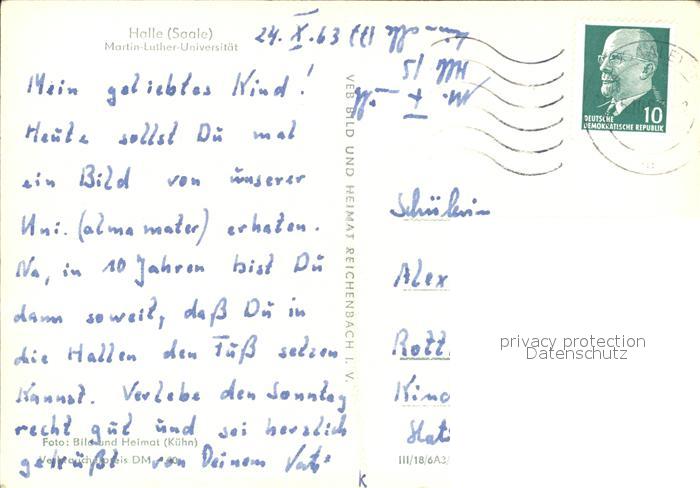 Halle (Saale)
Martin-Luther-Universität
24. X. 63
Mein geliebtes Kind!
Heute sollst Du mal
ein Bild von unserer
Uni. (alma mater) erhaten.
Na, in 10 Jahren bist Du
dann soweit, daß Du in
die Hallen den Fuß setzen
kannst. Verlebe den Sonntag
recht gut und sei herzlich
Foto: Bild und Heimat (Kühn)
gegrüßt von Deinem Vati
Verbrauchpreis DM
VEB BILD UND HEIMAT REICHENBACH I. V.
DEUTSCHE
DEMOKRATISCHE REPUBLIK
10
Schülerin
Alex
Rott
privacy protection
Datenschutz
Kind
III/18/6A3/
K